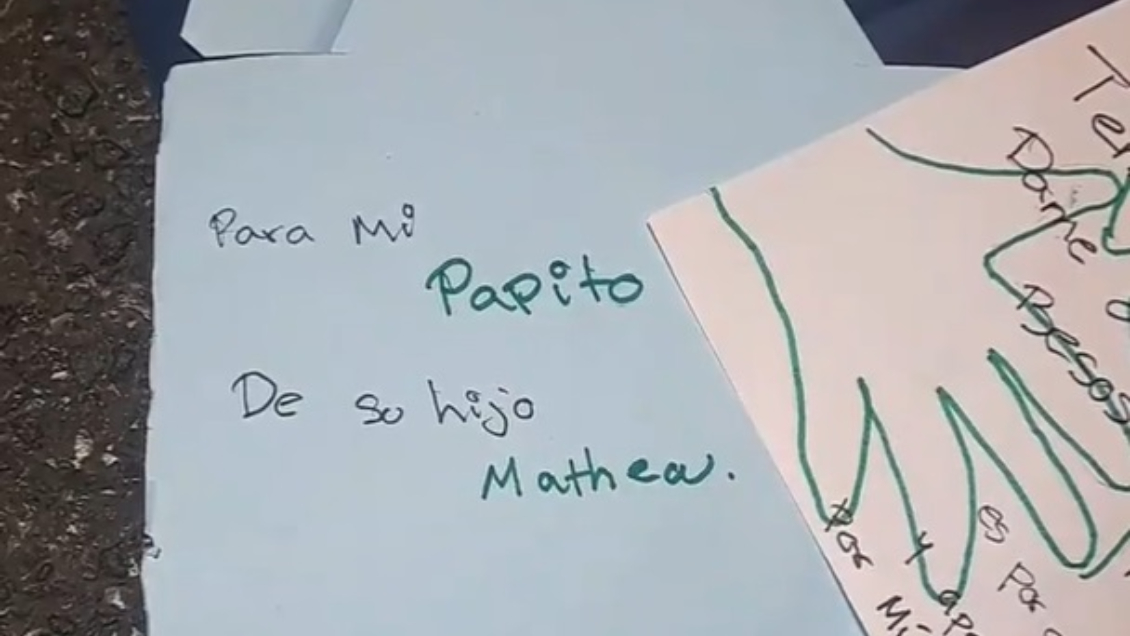 Para mi
Papito
De su hijo
Mathew.
Dame
Besos
Por
y
es
Por